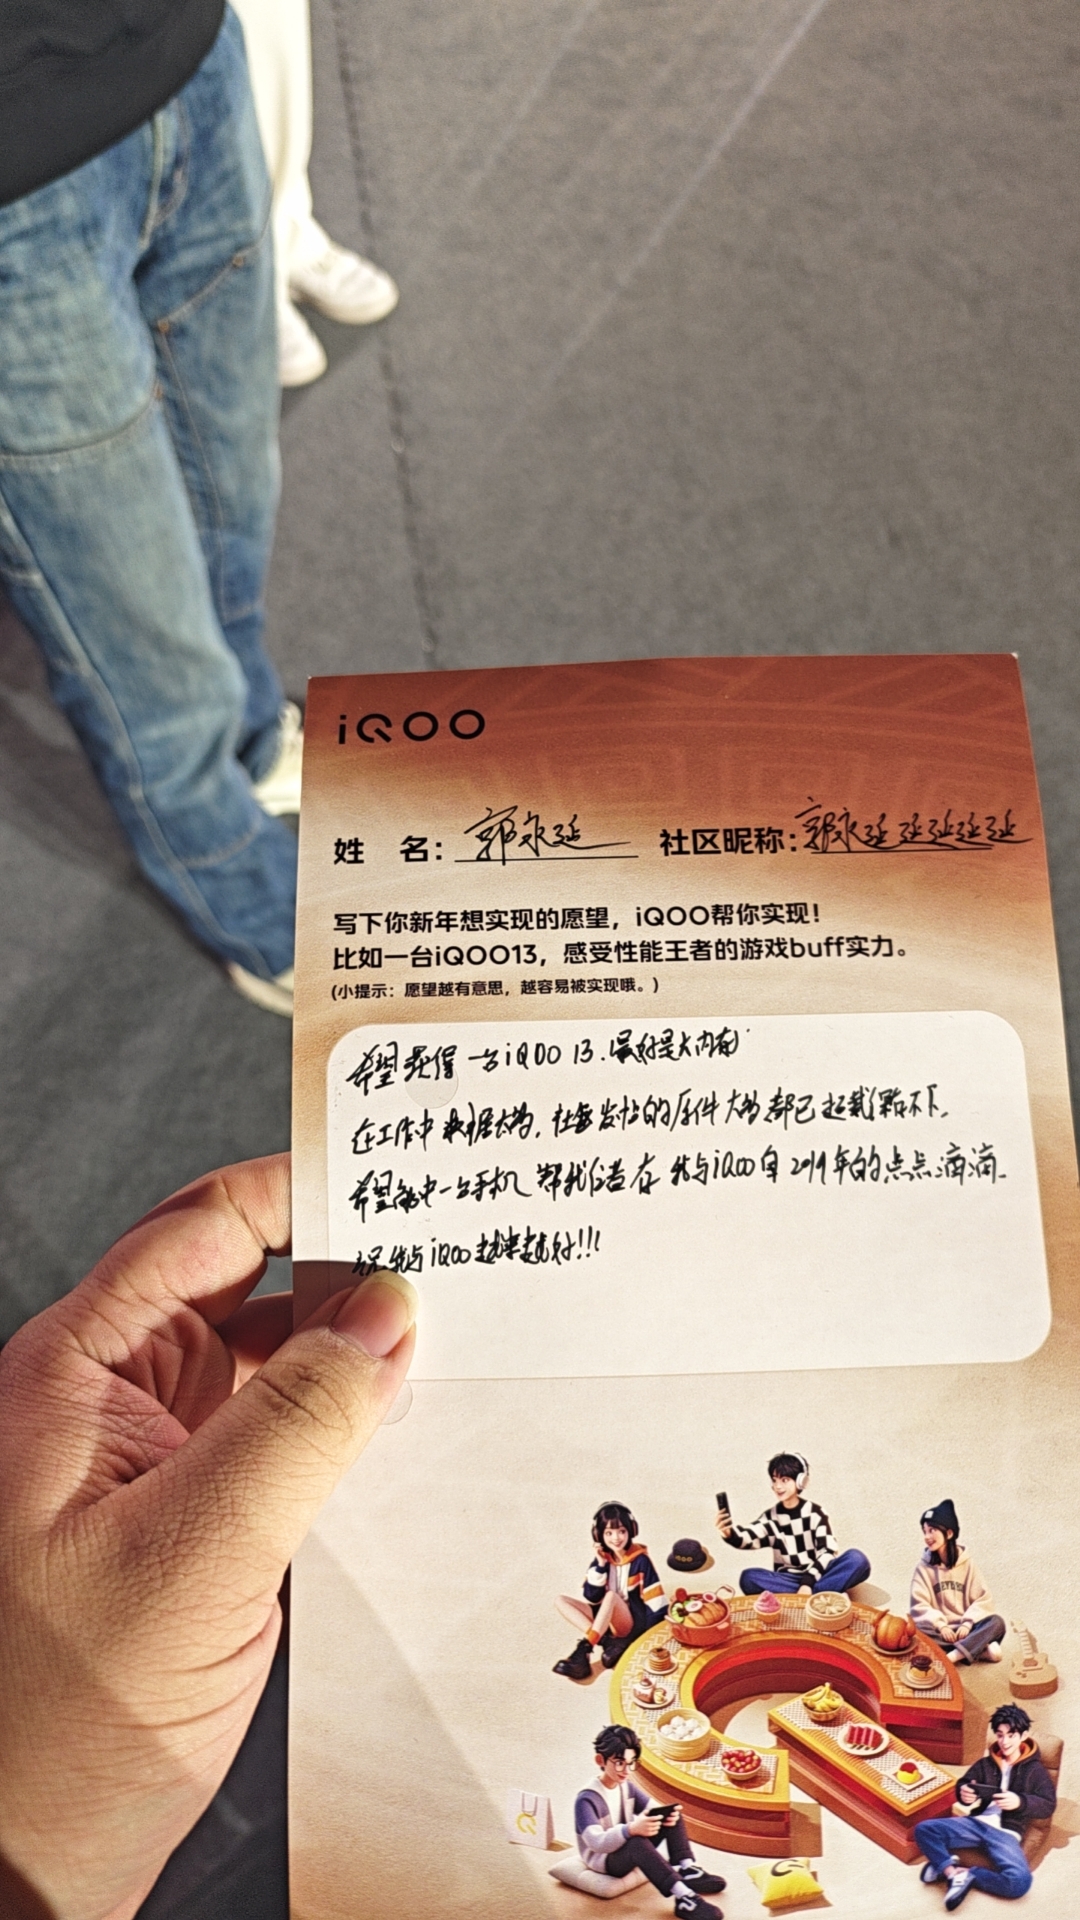 iQOO
姓 名：郭永延 社区昵称：郭永延延延延延
写下你新年想实现的愿望，iQOO帮你实现！
比如一台iQOO13，感受性能王者的游戏buff实力。
(小提示：愿望越有意思，越容易被实现哦。)
希望获得一台iQOO 13.最好是大内存
在工作中数据太多，社区发帖的原件太多都已超载
希望能中一台手机 帮我储存 我与iQOO自2019年的点点滴滴
祝我与iQOO越来越好!!!